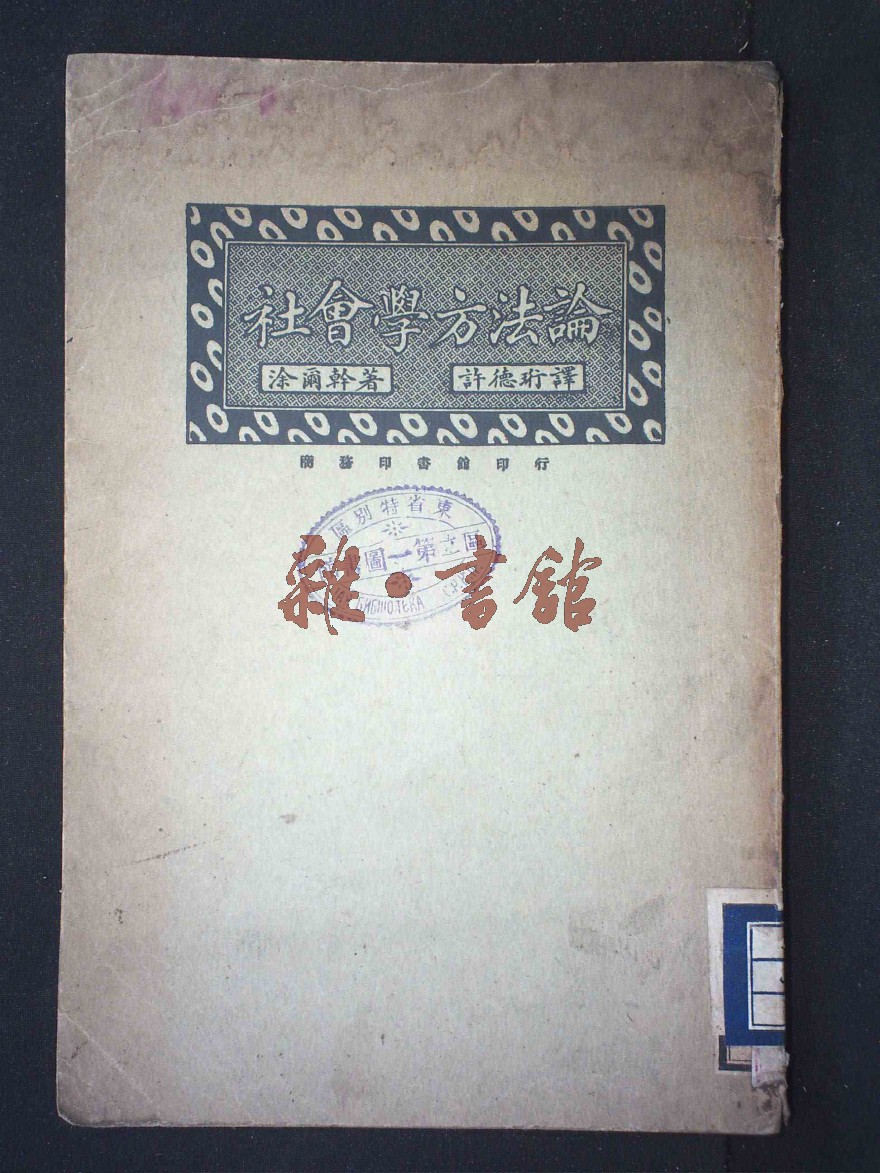 社會學方法論
涂爾幹著 許德珩譯
商務印書館印行
東省特別區
區立第一圖書
雜·書館
БИБЛІОТЕКА